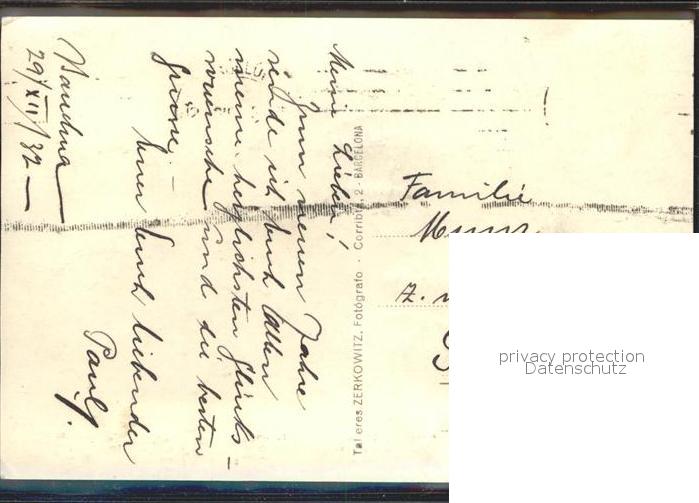 Meine Lieben!
Zum neuen Jahre
sende ich Euch allen
meine herzlichsten Glücks-
wünsche und die besten
Grüsse. –
Euer Euch liebender
Paul
29/XII/32 –
Talleres ZERKOWITZ, Fotógrafo - Corribia, 2 - BARCELONA
Familie
Z.
privacy protection
Datenschutz